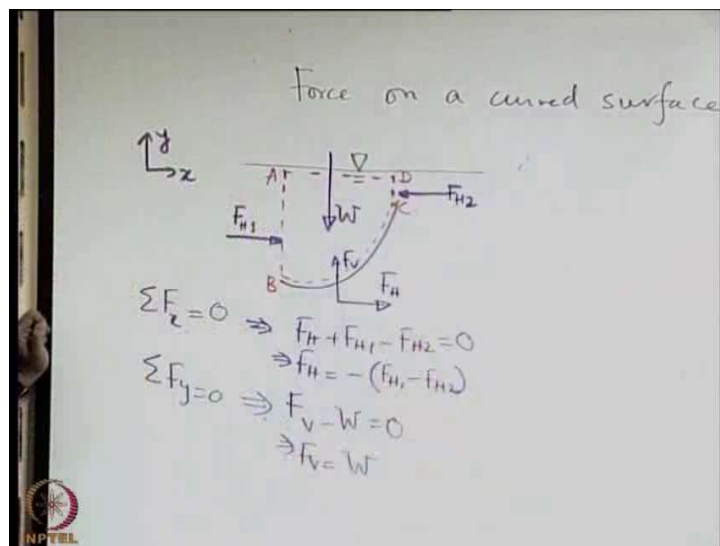 Force on a curved surface
y
x
A
D
F_H2
W
C
F_H1
F_V
B
F_H
ΣF_x = 0 ⇒ F_H + F_H1 - F_H2 = 0
⇒ F_H = - (F_H1 - F_H2)
ΣF_y = 0 ⇒ F_V - W = 0
⇒ F_V = W
NPTEL